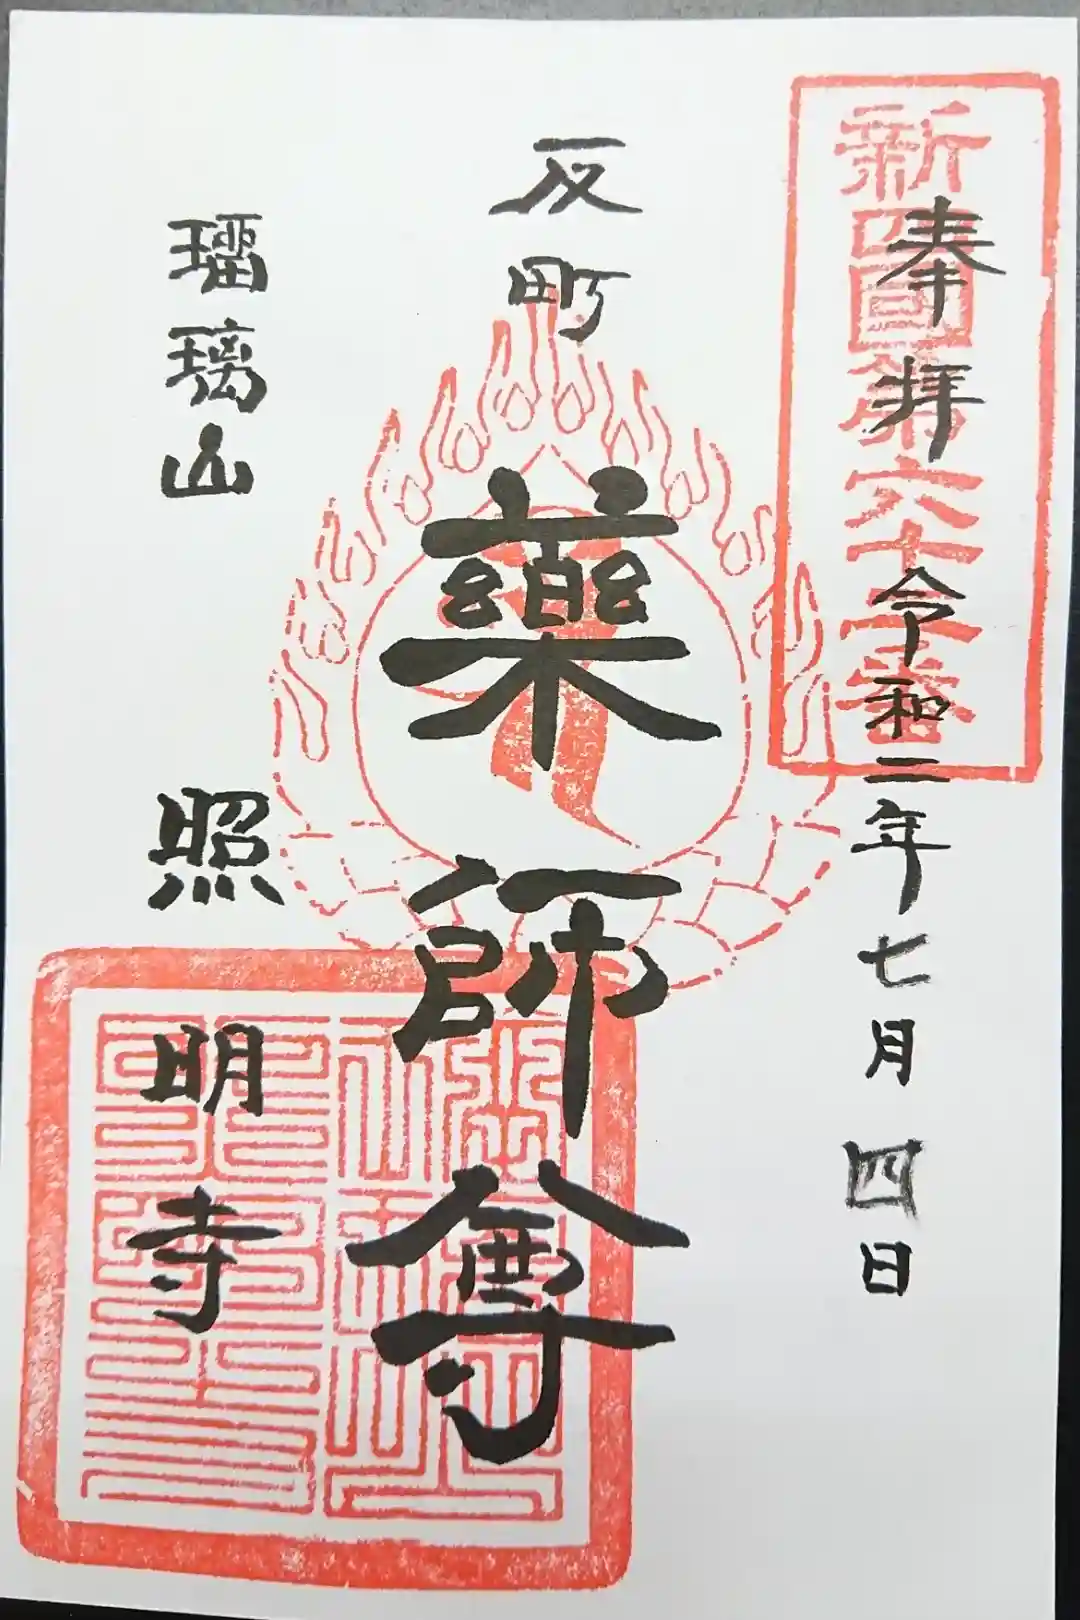 新四國第六十番
奉拝 令和二年七月四日
反町 藥師尊
瑠璃山 照明寺